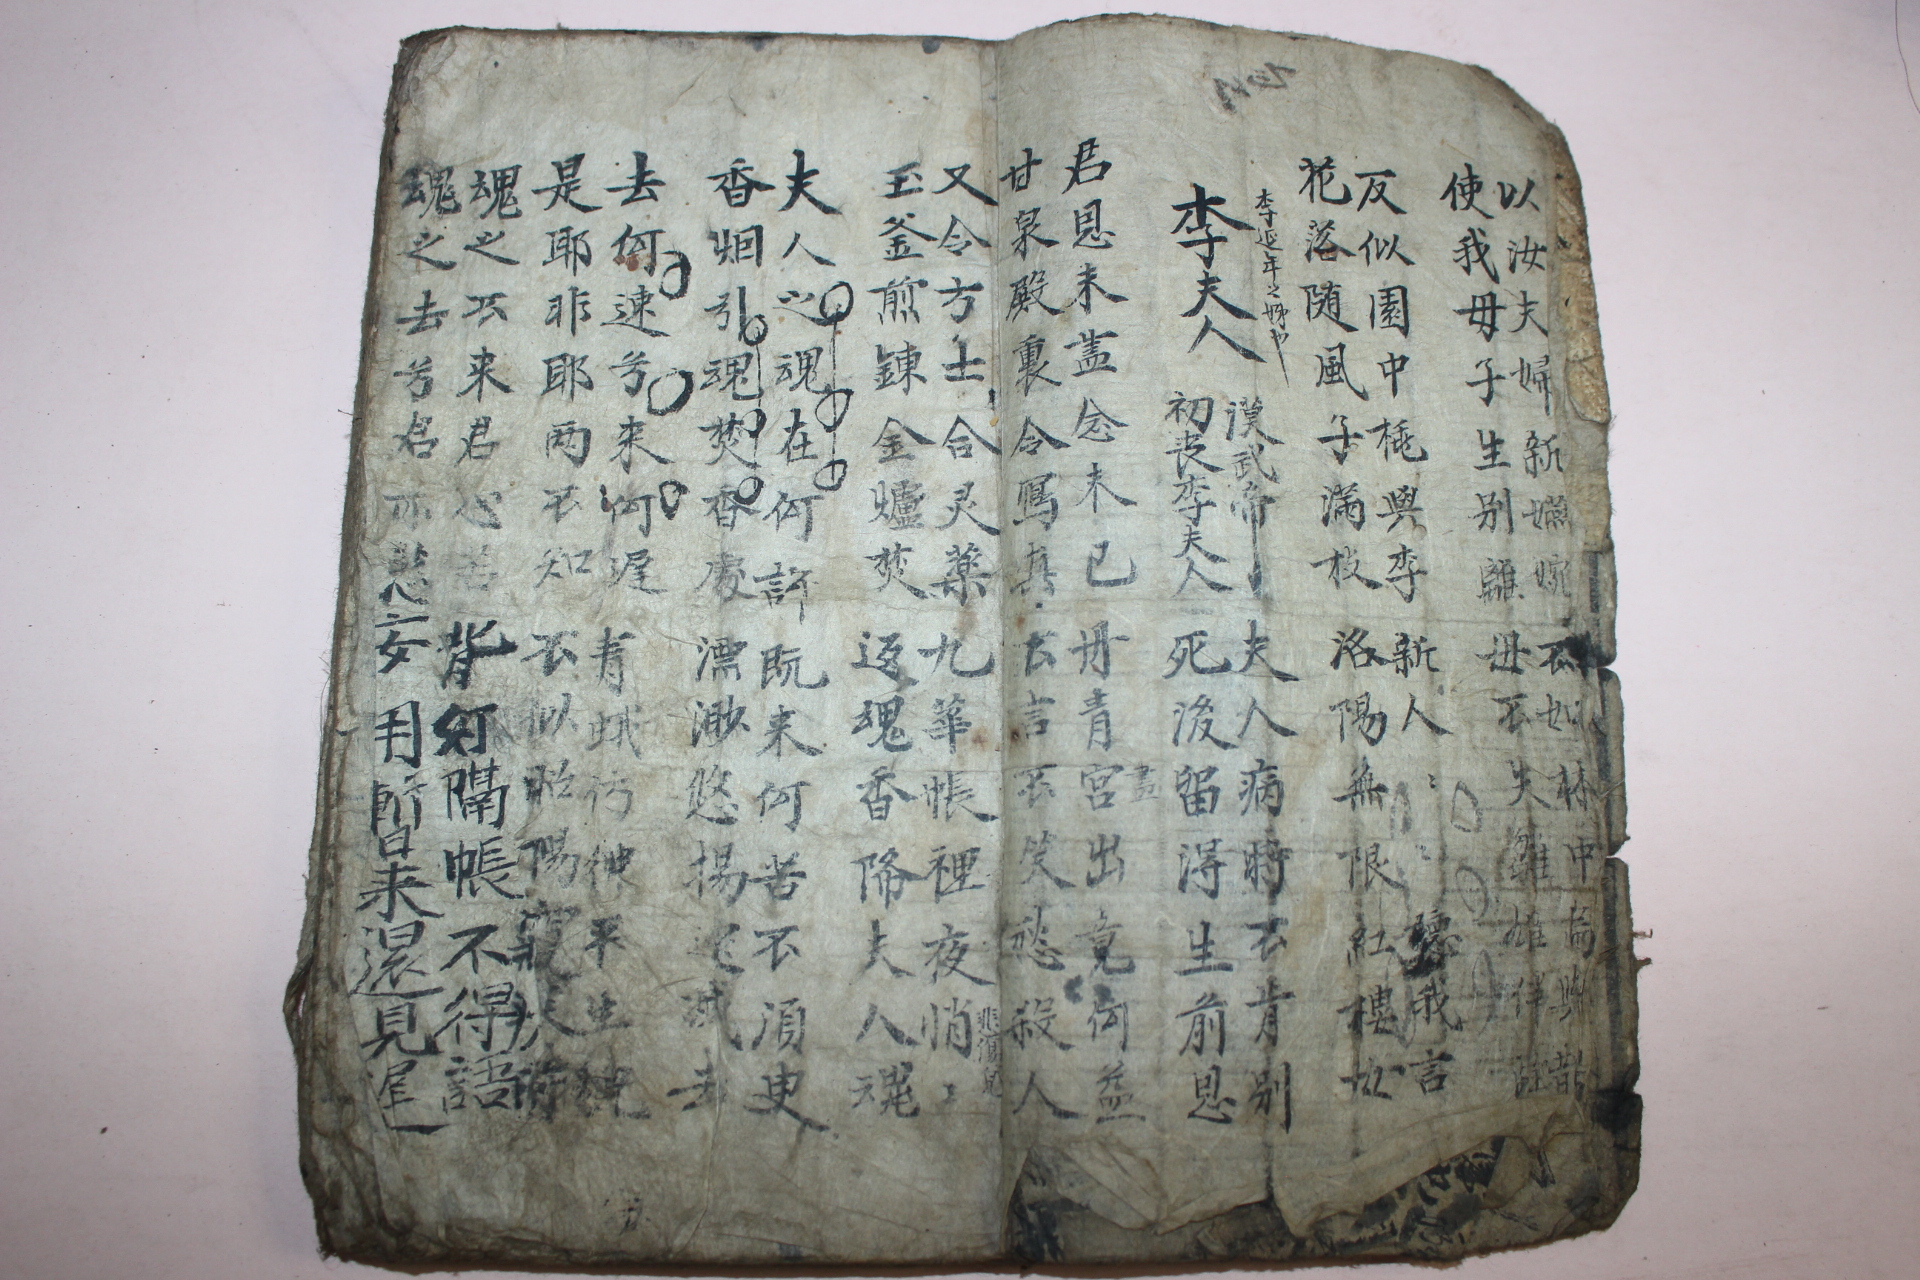 以汝夫婦新嬿婉
使我母子生别離
不如林中烏與鵲
母不失雛雄伴雌
反似園中桃與李
花落随風子滿枝
新人〻〻聽我言
洛陽無限紅樓女
李夫人
李延年之姊也
漢武帝
初丧李夫人
夫人病時不肯别
死後留得生前恩
君恩未盖念未已
甘泉殿裏令寫真
丹青宮出竟何益
畫
不言不笑愁殺人
又令方士合灵藥
玉釜煎鍊金爐焚
九華帳裡夜悄〻
返魂香降夫人魂
夫人之魂在何許
香烟引魂焚香處
既来何苦不須臾
漂渺悠揚还滅去
去何速兮来何遲
是耶非耶两不知
青蛾彷彿平生貌
不似昭陽寢疾時
魂之不来君心苦
魂之去兮君亦悲
背灯隔帳不得語
安用暫来還見違